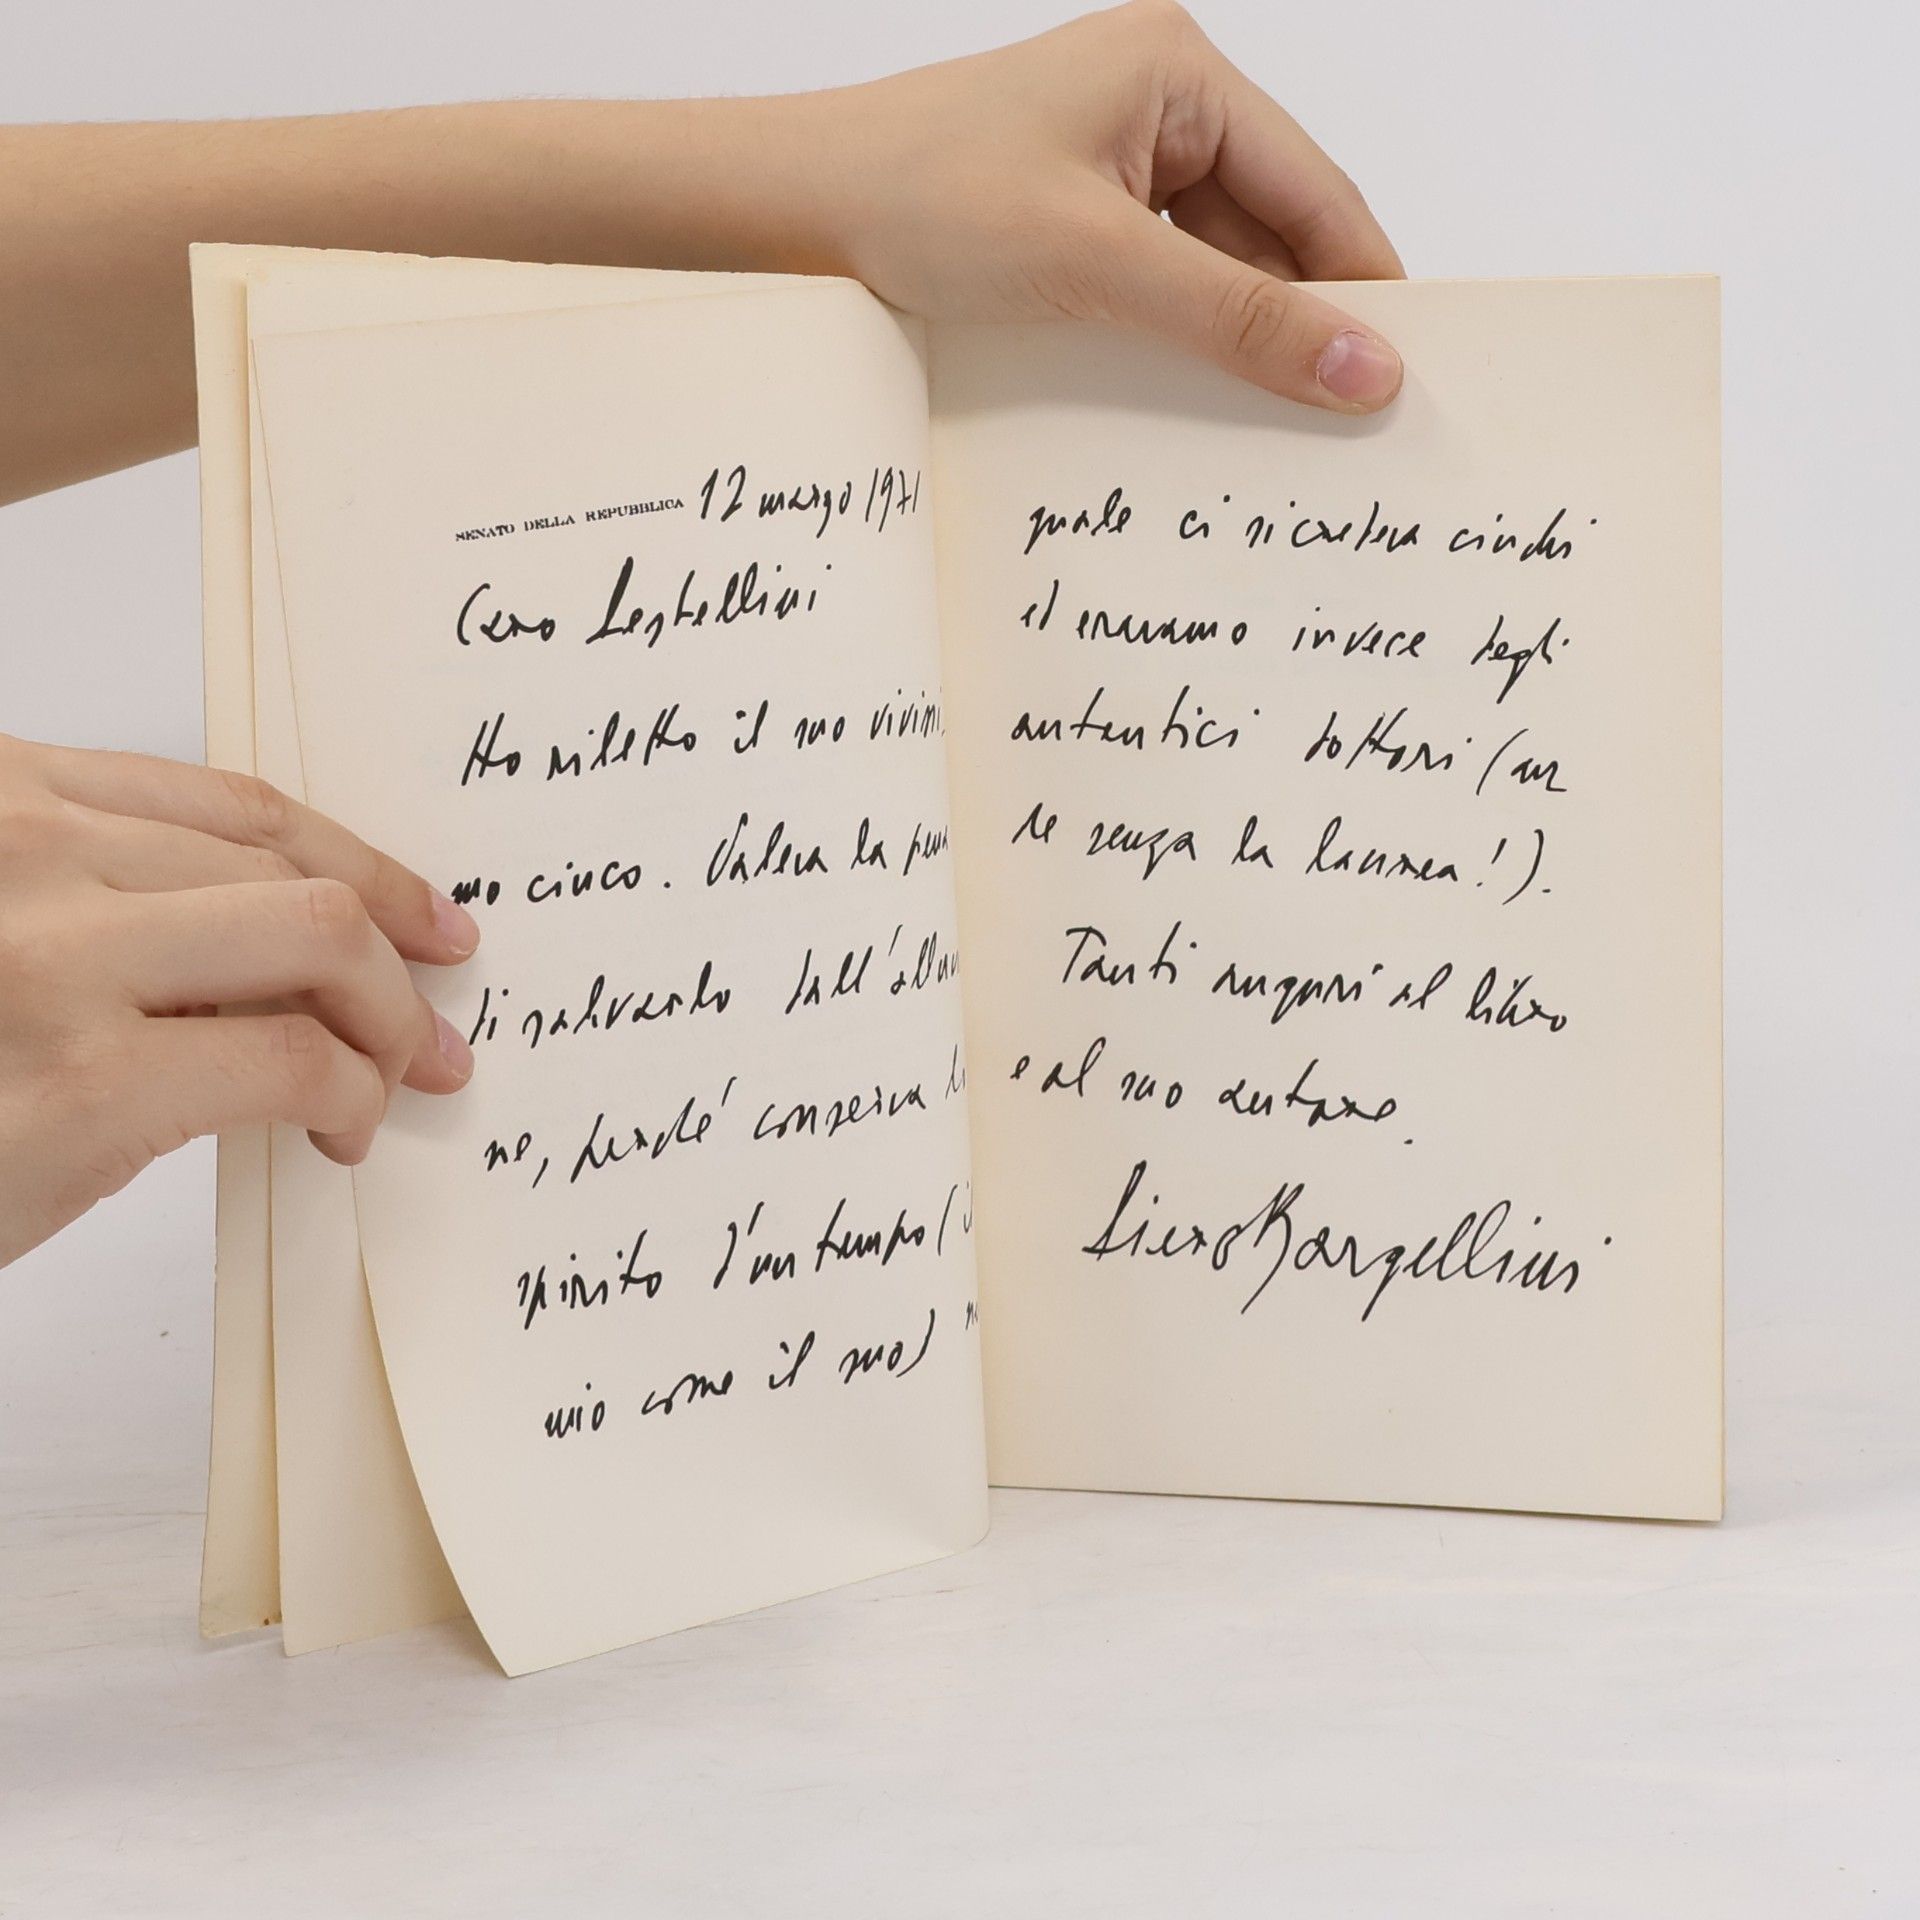 SENATO DELLA REPUBBLICA 12 marzo 1971
Caro Lestellini
Ho riletto il suo vivissi
mo cinco. Valeva la pena
di salvarlo dall'alluvio
ne, perché conserva lo
spirito d'un tempo (il
mio come il suo) nel
quale ci si credeva ciuchi
ed eravamo invece degli
autentici dottori (an
che senza la laurea!).
Tanti auguri al libro
e al suo autore.
Piero Bargellini